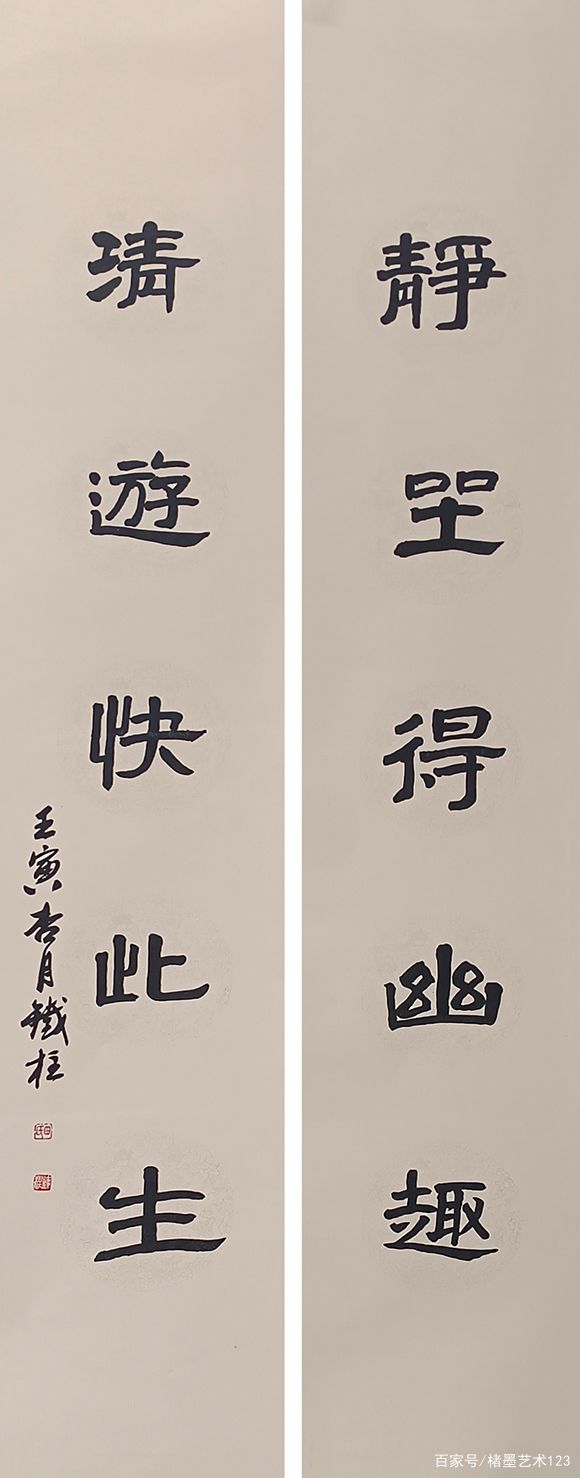 靜坐得幽趣
清遊快此生
壬寅杏月鐵柱
百家号/楮墨艺术123